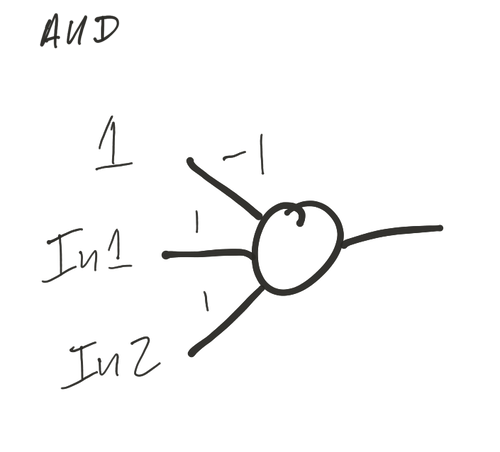 AND
1 -1
In1 1
1
In2